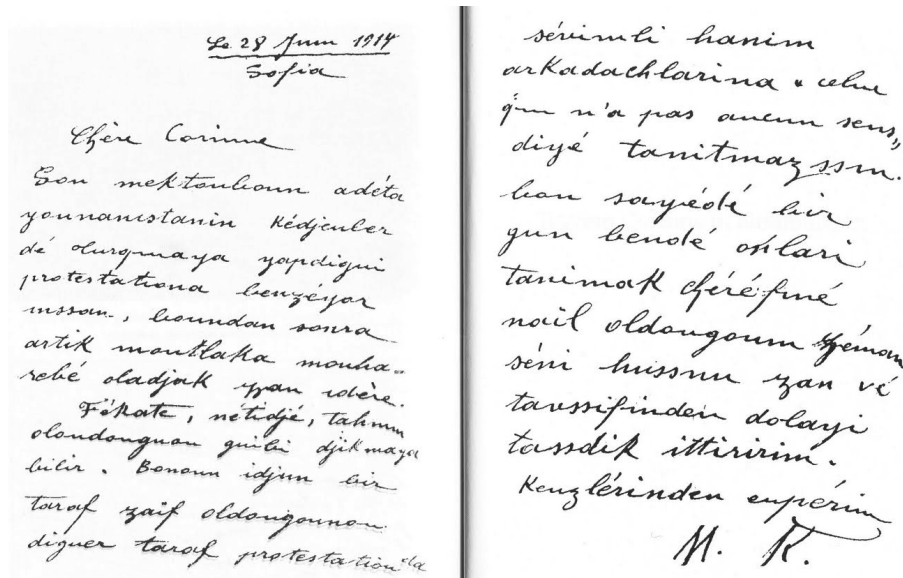 Le 28 Juin 1914
Sofia
Chère Corinne
Son mektouboun adéta
younanistanin kédjenler
dé turqmaya yapdigui
protestationa benzéyor
inssan, boundan sonra
artik moutlaka mouha-
rebé oladjak zan idére.
Fékate, nétidjé, tahmin
oloundougnon guibi djikmaya
bilir. Bonoun idjun bir
taraf zaif oldougounou
diguer taraf protestation ila
sévimli hanim
arkadachlarina « celui
qui n'a pas aucun sens"
diyé tanitmazssin.
bou sayédé bir
gun bendé onlari
tanimak chéréfiné
naïl oldougoum zéman
séni hussnu zan vé
tavssifinden dolayi
tassdik ittiririm.
Keuzlérinden eupérim
M. K.